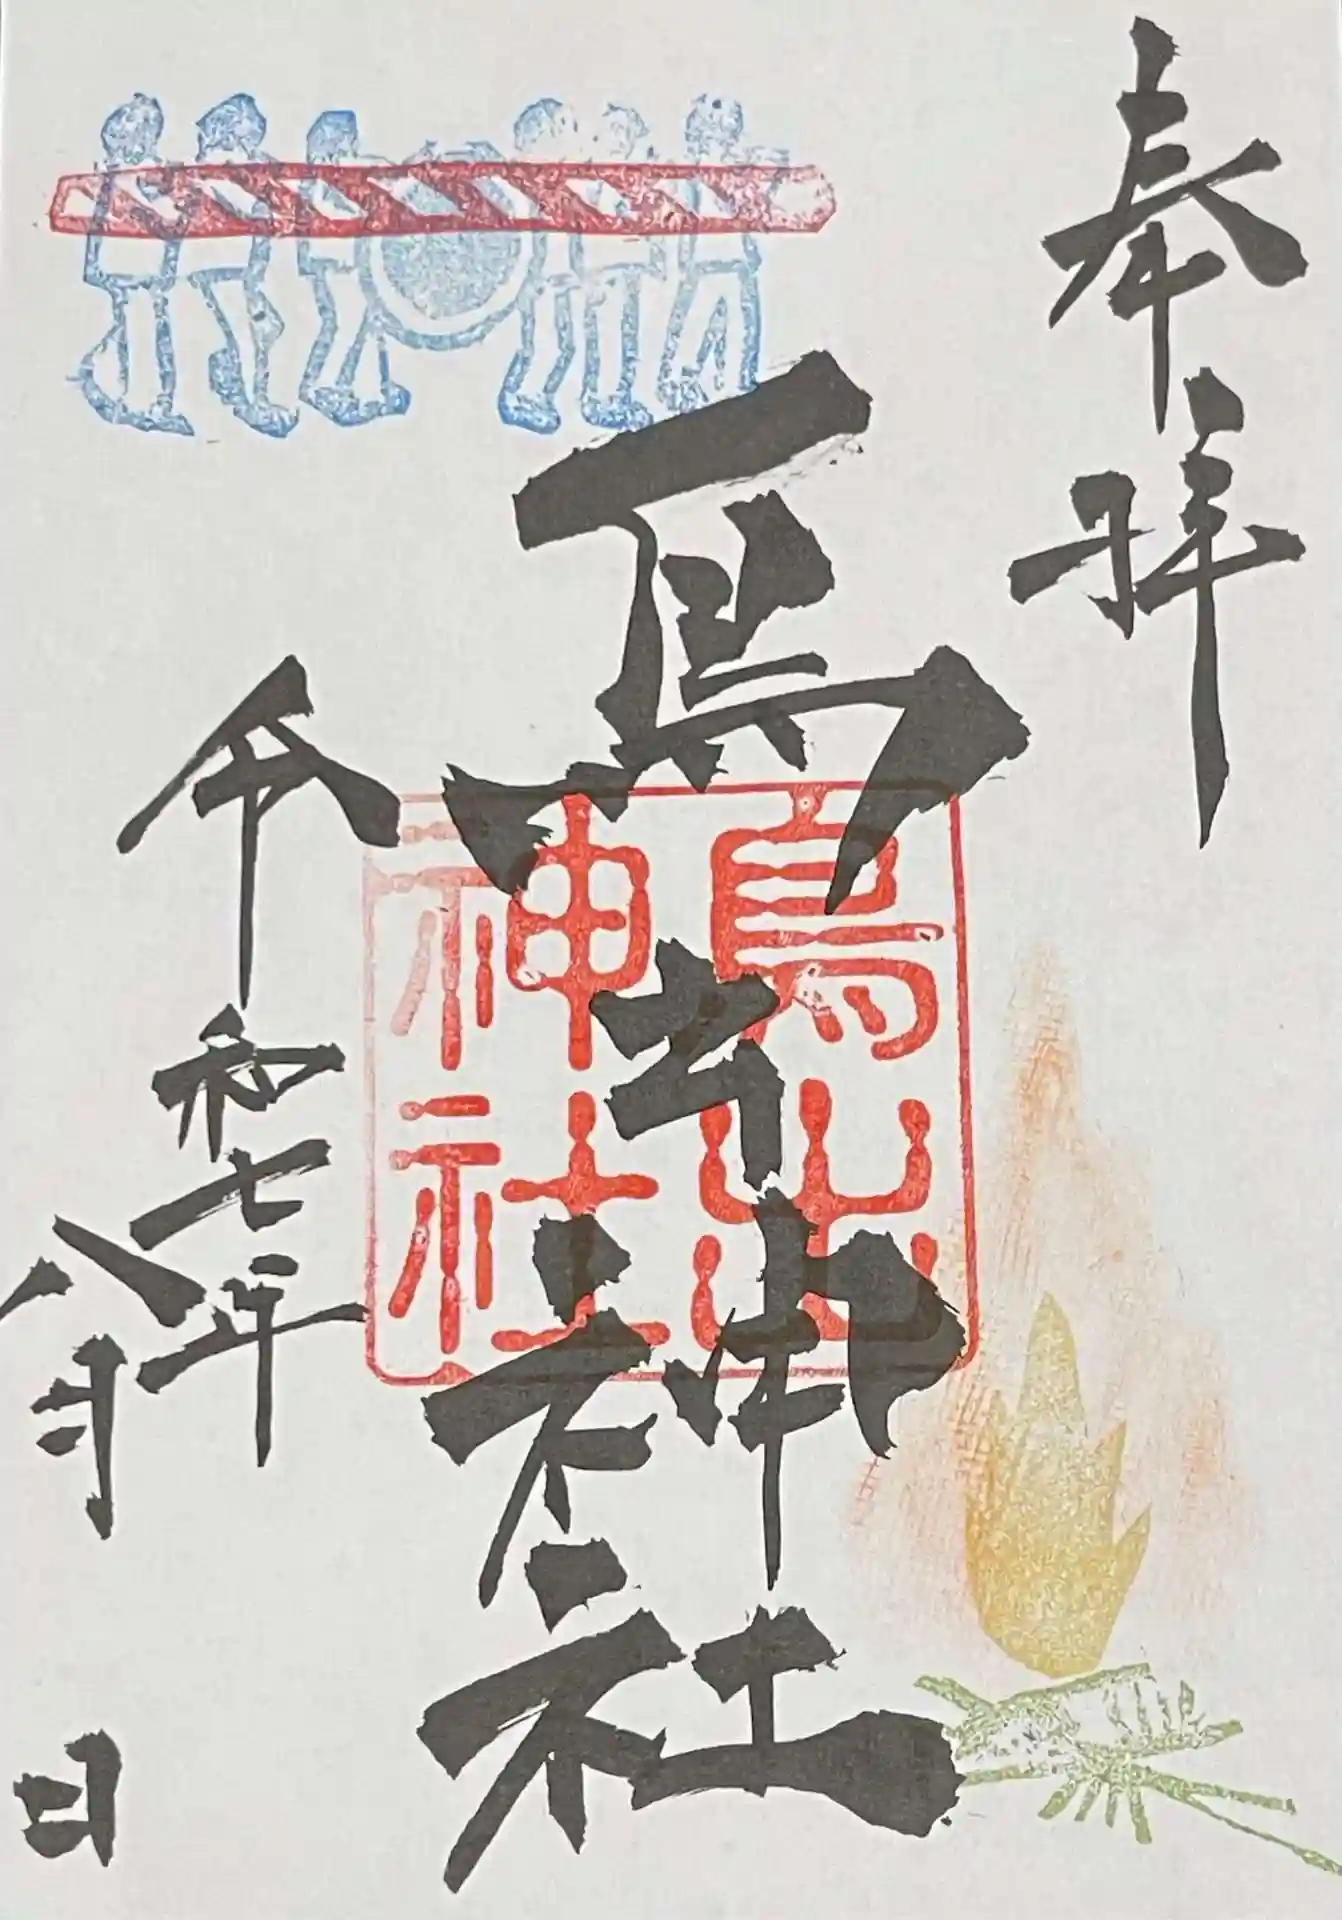 奉拝
鳥出神社
鳥出
神社
令和七年
八月 日